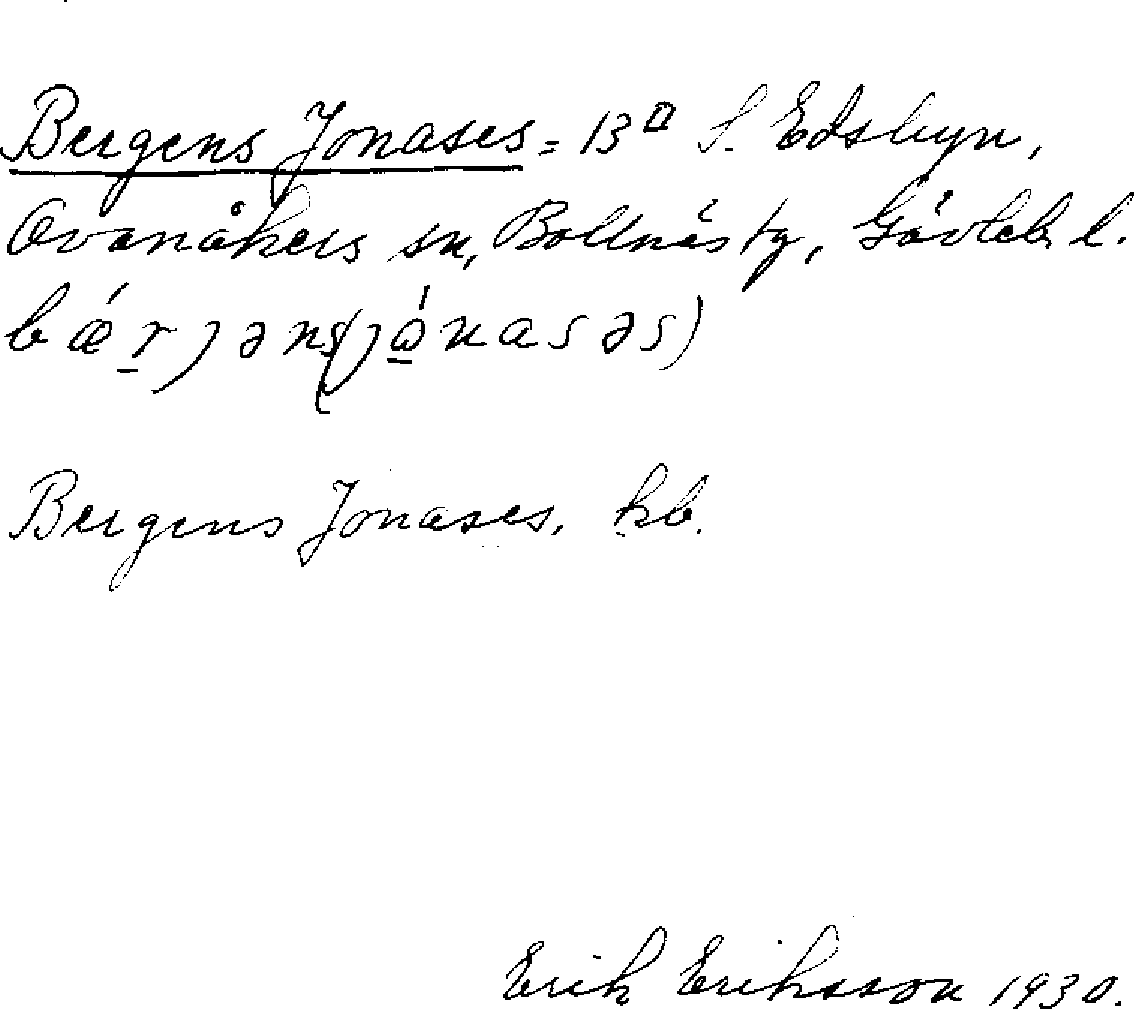 Bergens Jonases = 13¤ S. Edsbyn,
Ovanåkers sn, Bollnäs tg, Gävleb. l.
bǽr̲jəns(jɷ̲́nasəs)
Bergens Jonases. kb.
Erik Eriksson 1930.